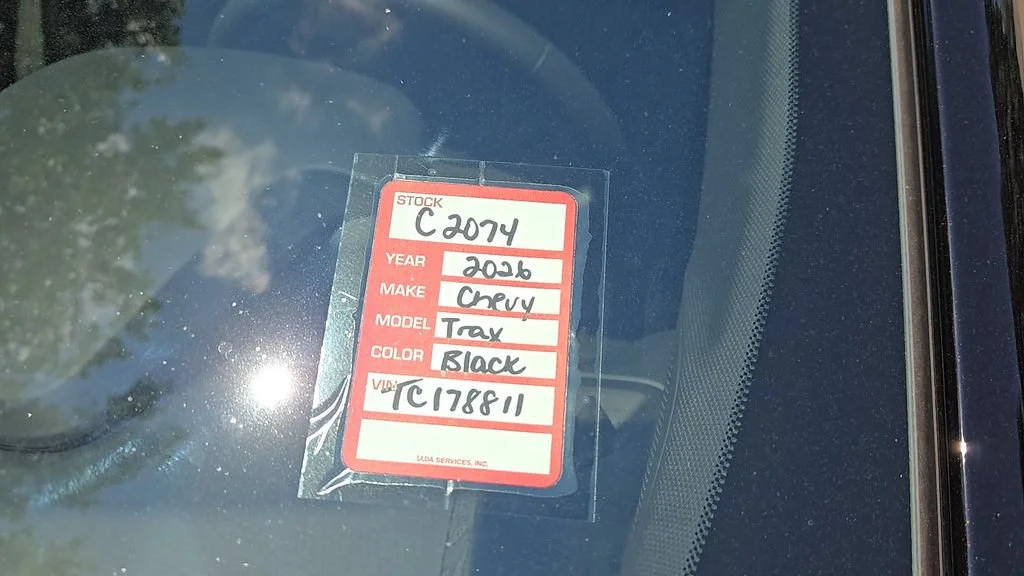 STOCK
C2074
YEAR 2026
MAKE Chevy
MODEL Trax
COLOR Black
VIN TC178811
IADA SERVICES, INC.